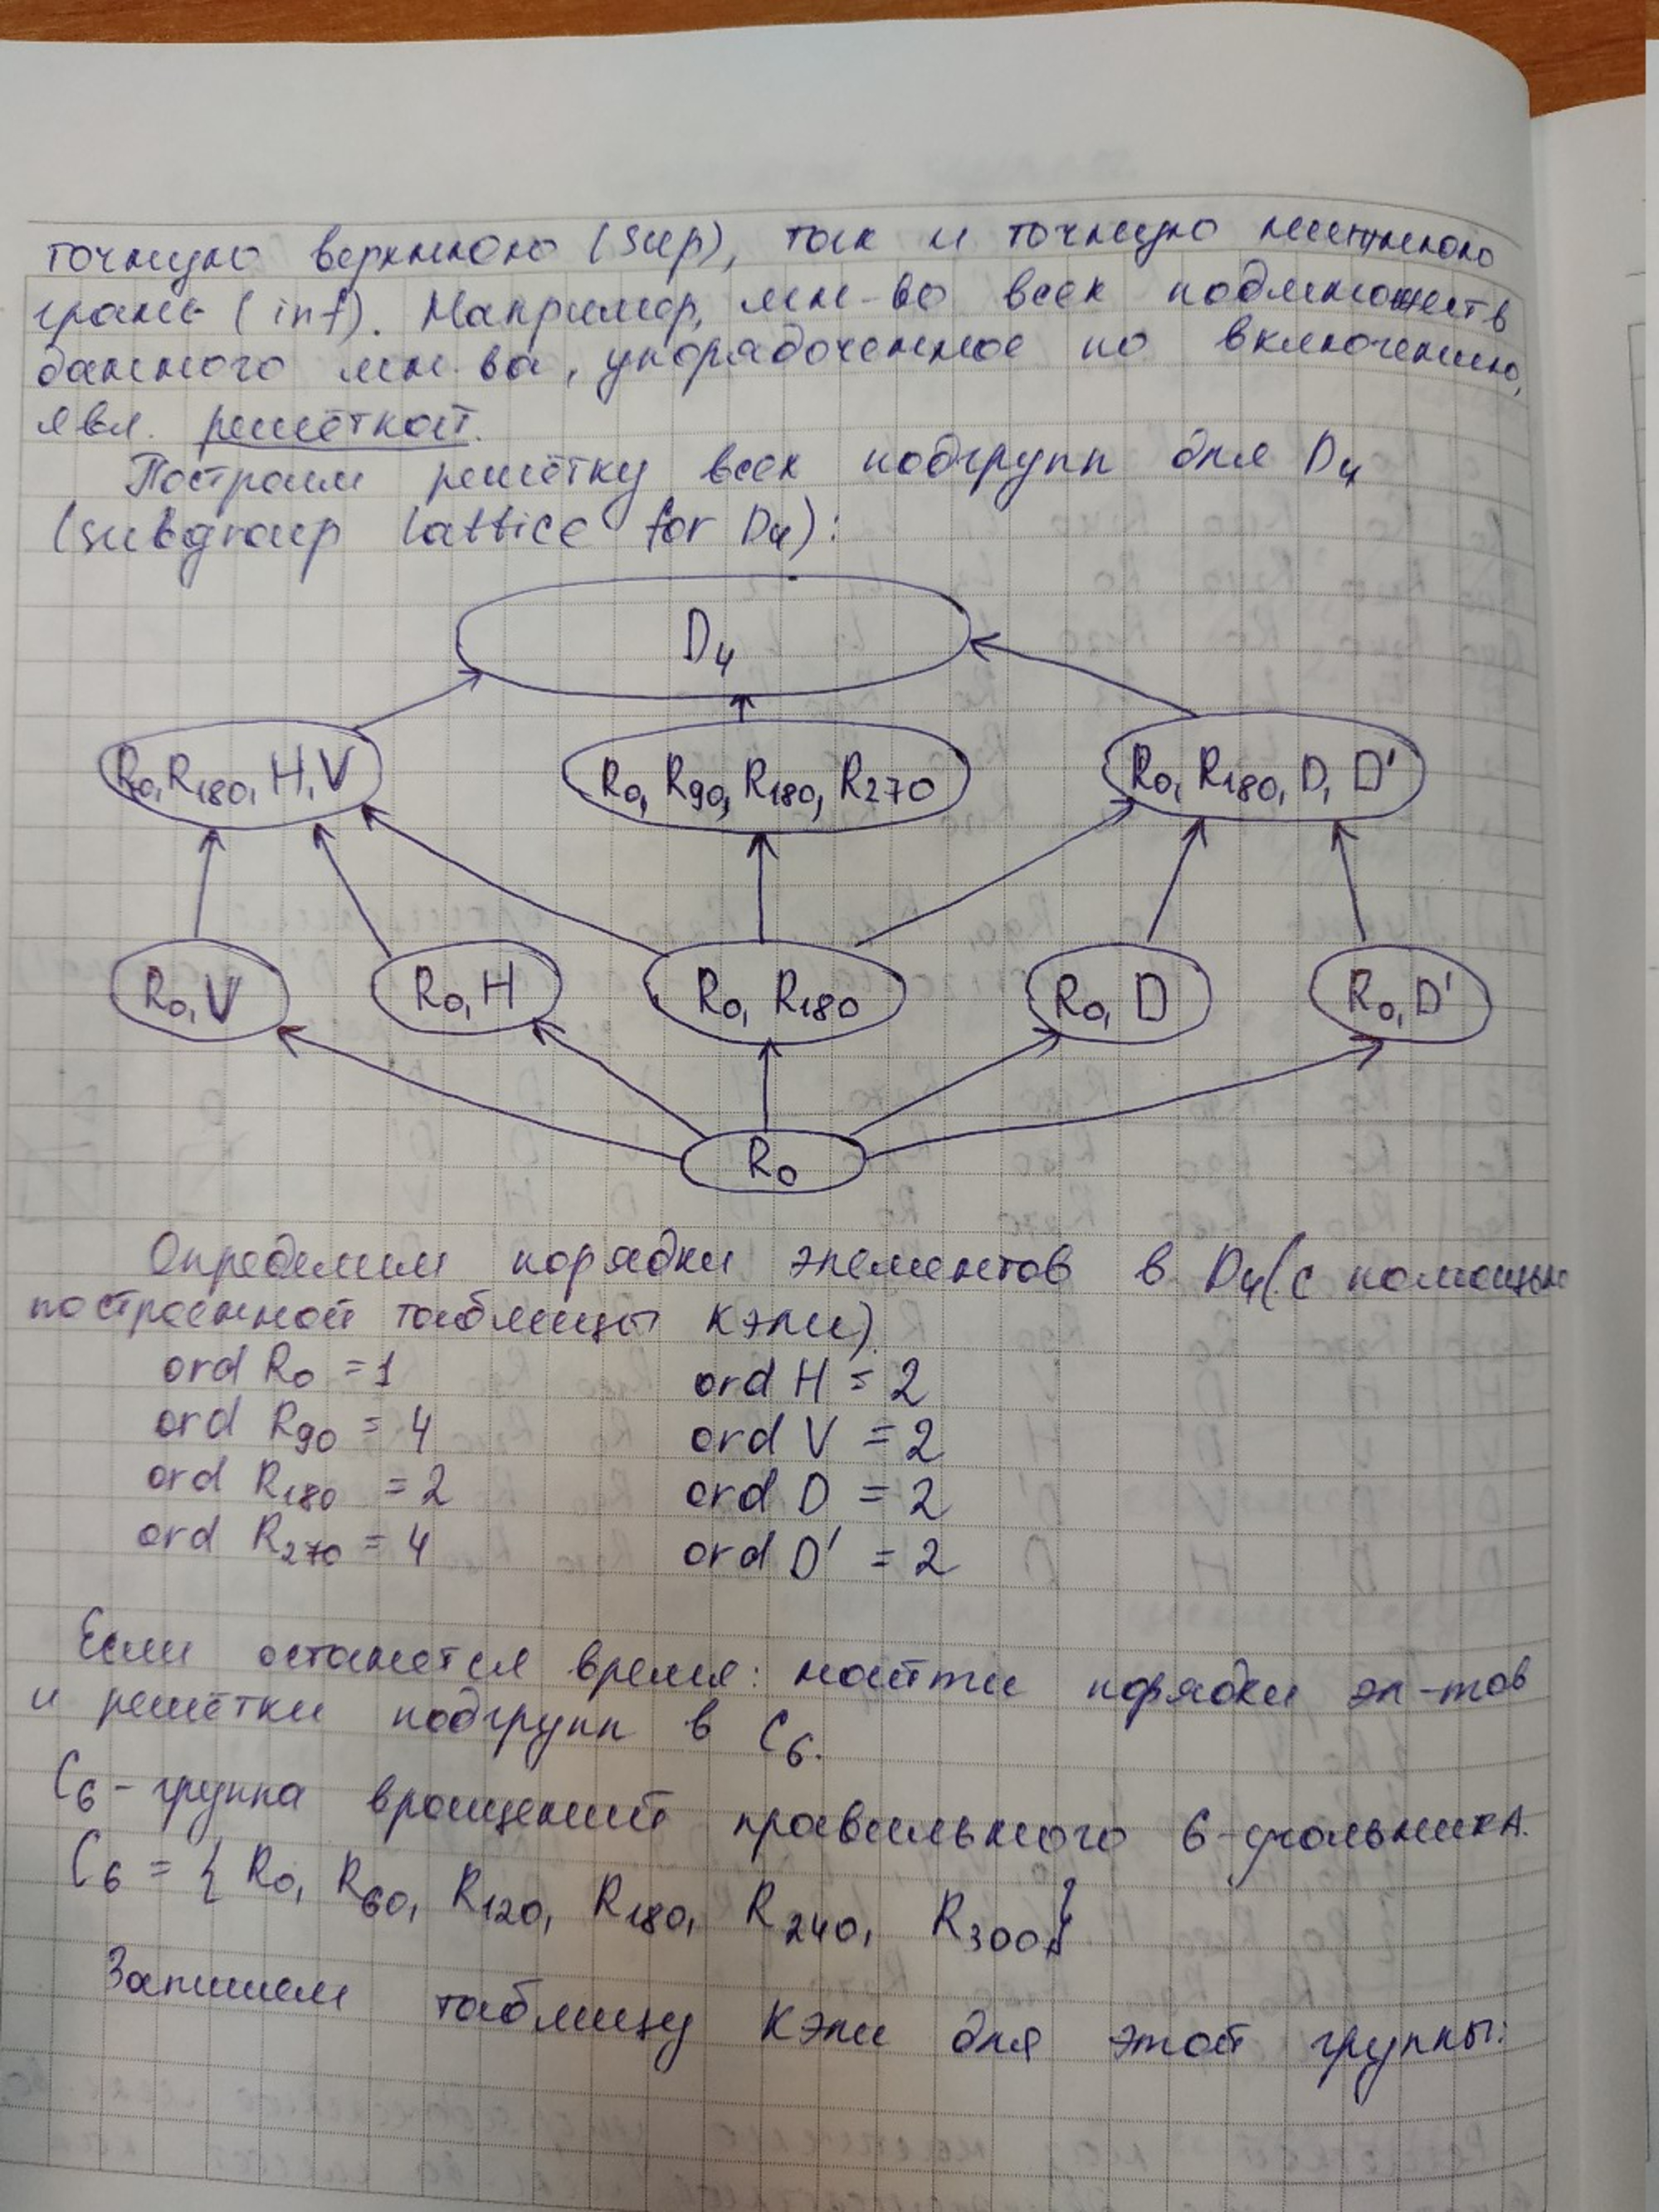 точную верхнюю (sup), так и точную нижнюю
грань (inf). Например, мн-во всех подмножеств
данного мн-ва, упорядоченное по включению,
явл. решёткой.
Построим решётку всех подгрупп для D₄
(subgroup lattice for D₄):
D₄
R₀, R₁₈₀, H, V
R₀, R₉₀, R₁₈₀, R₂₇₀
R₀, R₁₈₀, D, D'
R₀, V
R₀, H
R₀, R₁₈₀
R₀, D
R₀, D'
R₀
Определим порядки элементов в D₄ (с помощью
построенной таблицы Кэли).
ord R₀ = 1
ord R₉₀ = 4
ord R₁₈₀ = 2
ord R₂₇₀ = 4
ord H = 2
ord V = 2
ord D = 2
ord D' = 2
Если останется время: найти порядки эл-тов
и решётки подгрупп в C₆.
C₆ - группа вращений правильного 6-угольника.
C₆ = { R₀, R₆₀, R₁₂₀, R₁₈₀, R₂₄₀, R₃₀₀}
Запишем таблицу Кэли для этой группы: